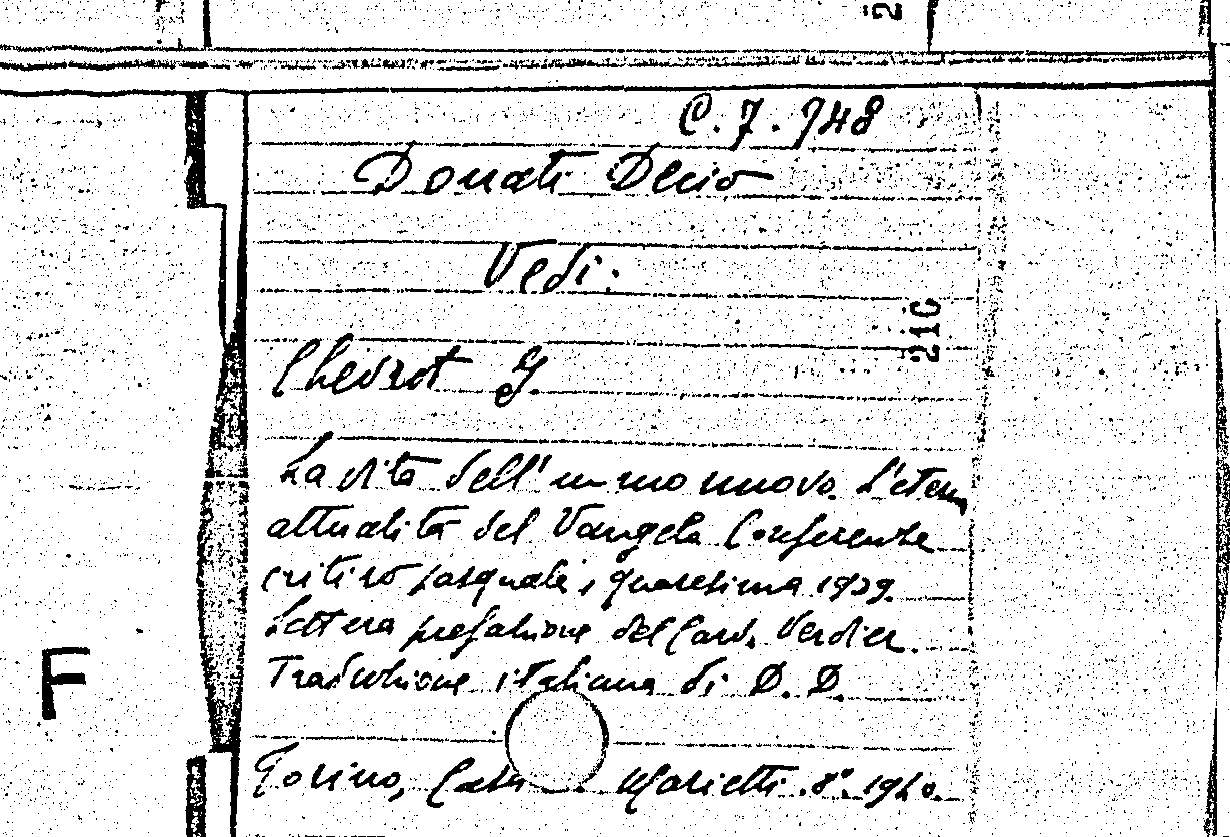 C. 7. 948
Donati Decio
Vedi:
21C
Chevrot G.
La vita dell'uomo nuovo. L'eterna
attualità del Vangelo Conferenze
ritiro pasquale, quaresima 1939.
Lettera prefazione del Card. Verdier.
Traduzione italiana di D. D.
F
Torino, Casa Marietti. 8°. 1940.